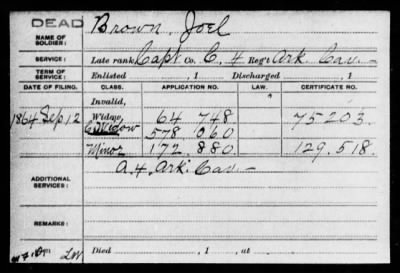 DEAD
NAME OF SOLDIER: Brown, Joel
SERVICE: Late rank, Capt Co. C. 4 Reg't Ark. Cav.—
TERM OF SERVICE: Enlisted , 1 Discharged , 1
DATE OF FILING. CLASS. APPLICATION NO. LAW. CERTIFICATE NO.
Invalid,
1864 Sep 12 Widow, 64 748 75203.
C Widow 578 060
Minor 172.880 129.518.
ADDITIONAL SERVICES: A. 4. Ark. Cav.—
REMARKS:
Died , 1 , at